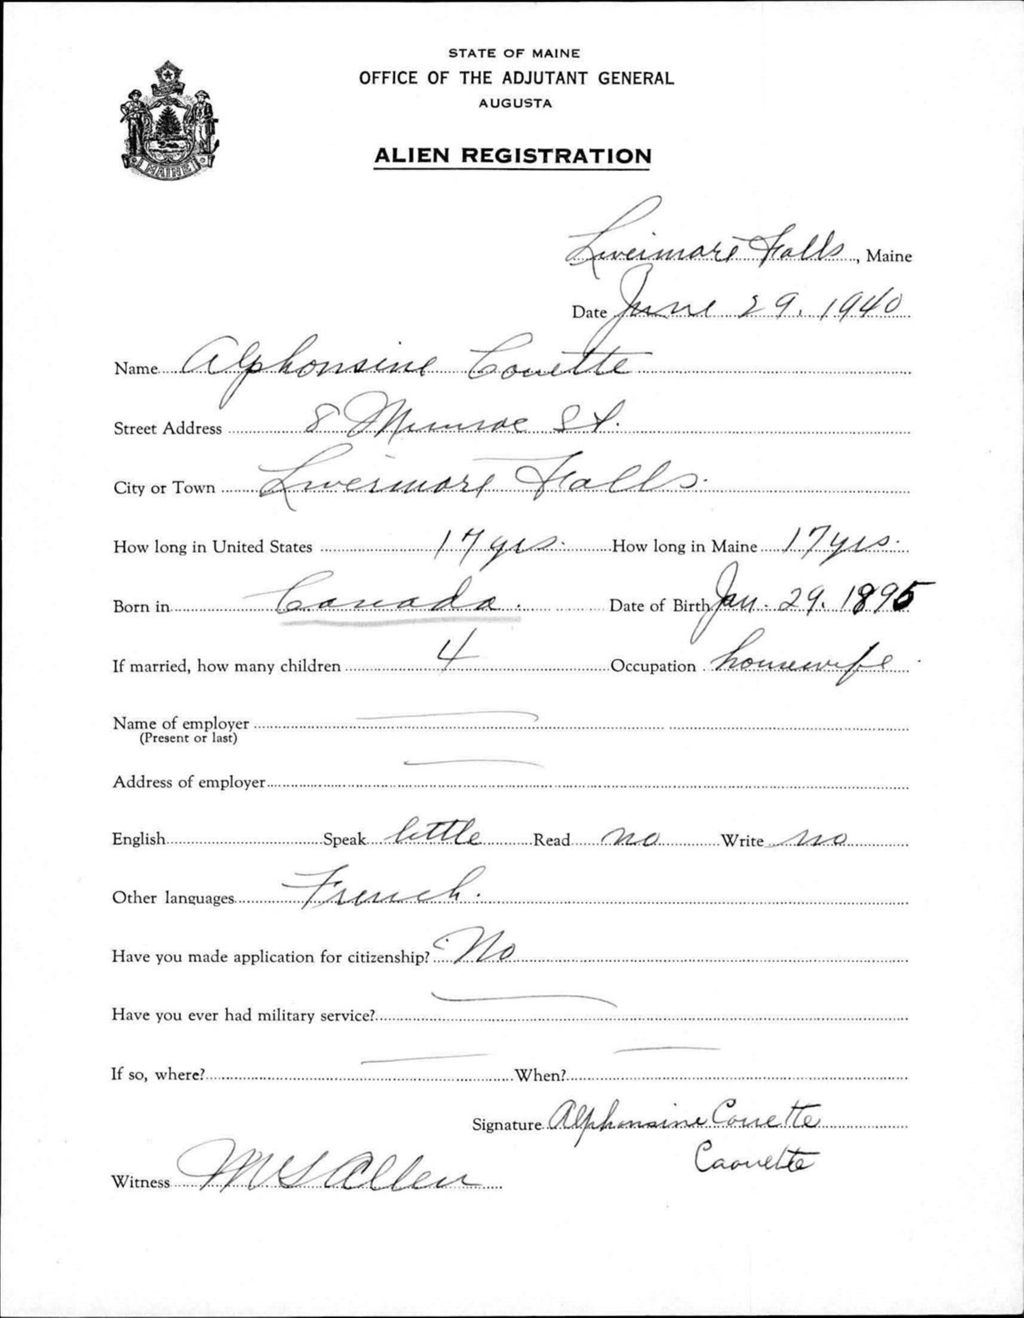 STATE OF MAINE
OFFICE OF THE ADJUTANT GENERAL
AUGUSTA
ALIEN REGISTRATION
MAINE
Livermore Falls, Maine
Date June 29, 1940
Name Alphonsine Couette
Street Address 8 Munroe St.
City or Town Livermore Falls.
How long in United States 17 yrs. How long in Maine 17 yrs.
Born in Canada. Date of Birth Jan. 29, 1895
If married, how many children 4 Occupation housewife
Name of employer
(Present or last)
Address of employer
English Speak little Read no Write no
Other languages French.
Have you made application for citizenship? No
Have you ever had military service?
If so, where? When?
Signature Alphonsine Couette
Caouette
Witness M S Allen